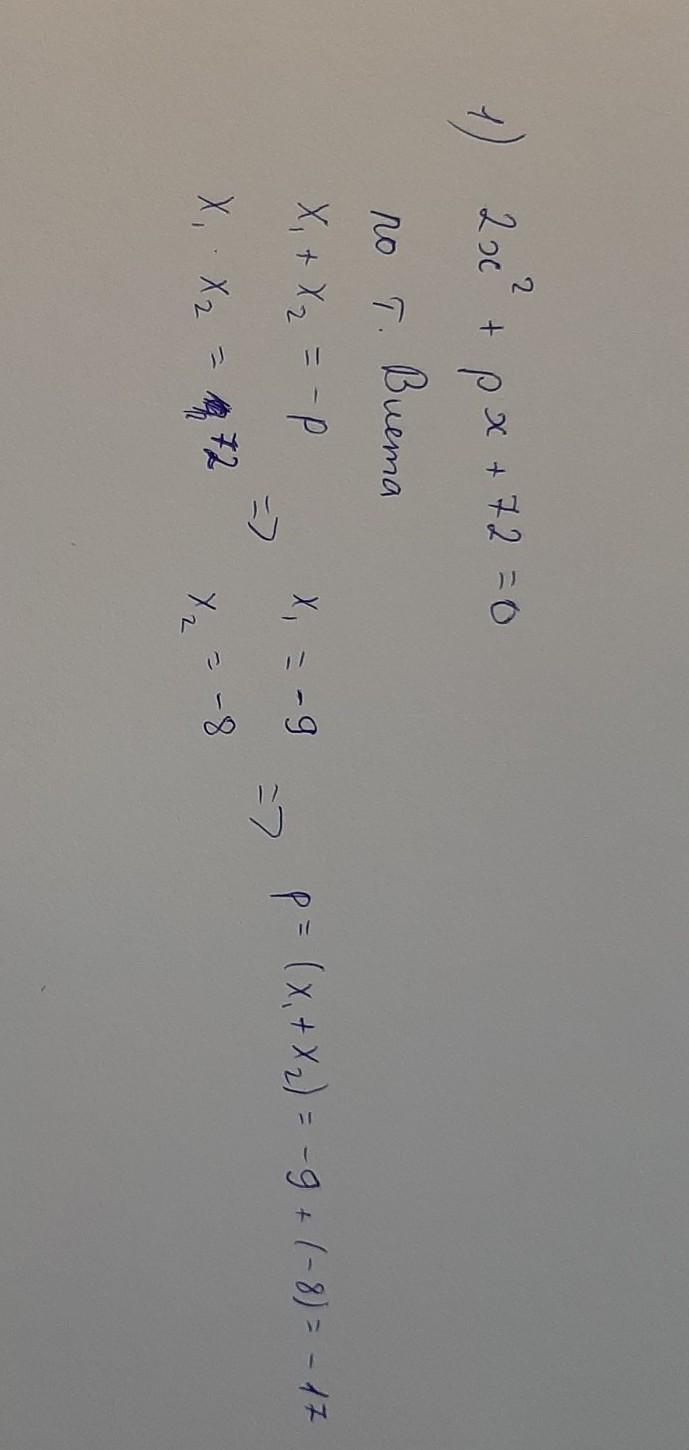 1) 2x² + px + 72 = 0
по т. Виета
x₁ + x₂ = -p
x₁ · x₂ = 72
=> x₁ = -9
x₂ = -8
=> p = (x₁ + x₂) = -9 + (-8) = -17